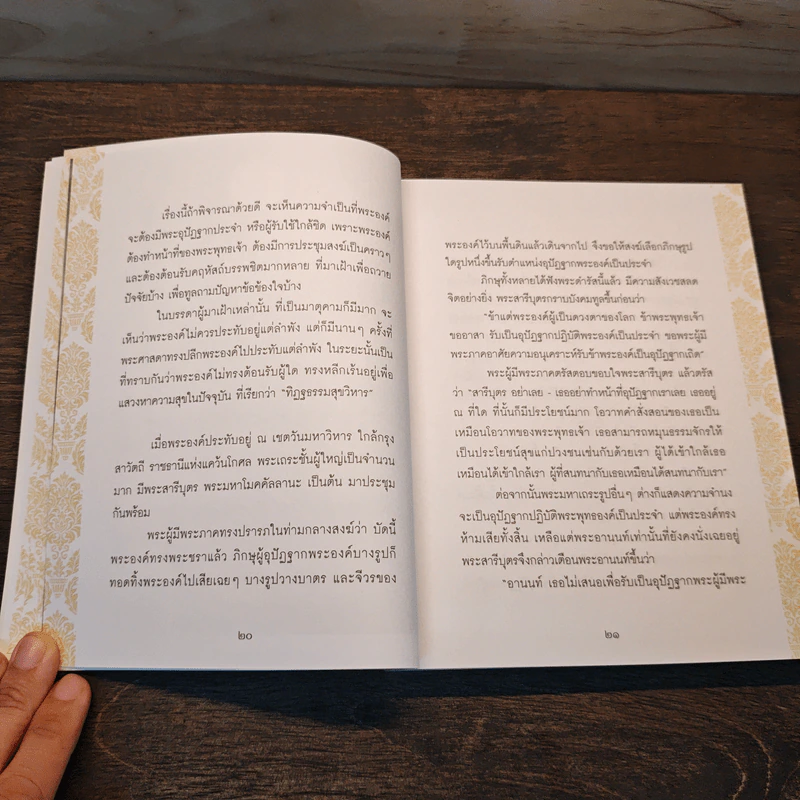 เรื่องนี้ถ้าพิจารณาด้วยดี จะเห็นความจำเป็นที่พระองค์
จะต้องมีพระอุปัฏฐากประจำ หรือผู้รับใช้ใกล้ชิด เพราะพระองค์
ต้องทำหน้าที่ของพระพุทธเจ้า ต้องมีการประชุมสงฆ์เป็นคราวๆ
และต้องต้อนรับคฤหัสถ์บรรพชิตมากหลาย ที่มาเฝ้าเพื่อถวาย
ปัจจัยบ้าง เพื่อทูลถามปัญหาข้อข้องใจบ้าง
ในบรรดาผู้มาเฝ้าเหล่านั้น ที่เป็นมาตุคามก็มีมาก จะ
เห็นว่าพระองค์ไม่ควรประทับอยู่แต่ลำพัง แต่ก็มีนานๆ ครั้งที่
พระศาสดาทรงปลีกพระองค์ไปประทับแต่ลำพัง ในระยะนั้นเป็น
ที่ทราบกันว่าพระองค์ไม่ทรงต้อนรับผู้ใด ทรงหลีกเร้นอยู่เพื่อ
แสวงหาความสุขในปัจจุบัน ที่เรียกว่า “ทิฏฐธรรมสุขวิหาร”
เมื่อพระองค์ประทับอยู่ ณ เชตวันมหาวิหาร ใกล้กรุง
สาวัตถี ราชธานีแห่งแคว้นโกศล พระเถระชั้นผู้ใหญ่เป็นจำนวน
มาก มีพระสารีบุตร พระมหาโมคคัลลานะ เป็นต้น มาประชุม
กันพร้อม
พระผู้มีพระภาคทรงปรารภในท่ามกลางสงฆ์ว่า บัดนี้
พระองค์ทรงพระชราแล้ว ภิกษุผู้อุปัฏฐากพระองค์บางรูปก็
ทอดทิ้งพระองค์ไปเสียเฉยๆ บางรูปวางบาตร และจีวรของ
๒๐
พระองค์ไว้บนพื้นดินแล้วเดินจากไป จึงขอให้สงฆ์เลือกภิกษุรูป
ใดรูปหนึ่งขึ้นรับตำแหน่งอุปัฏฐากพระองค์เป็นประจำ
ภิกษุทั้งหลายได้ฟังพระดำรัสนี้แล้ว มีความสังเวชสลด
จิตอย่างยิ่ง พระสารีบุตรกราบบังคมทูลขึ้นก่อนว่า
“ข้าแต่พระองค์ผู้เป็นดวงตาของโลก ข้าพระพุทธเจ้า
ขออาสา รับเป็นอุปัฏฐากปฏิบัติพระองค์เป็นประจำ ขอพระผู้มี
พระภาคอาศัยความอนุเคราะห์รับข้าพระองค์เป็นอุปัฏฐากเถิด”
พระผู้มีพระภาคตรัสตอบขอบใจพระสารีบุตร แล้วตรัส
ว่า “สารีบุตร อย่าเลย - เธออย่าทำหน้าที่อุปัฏฐากเราเลย เธออยู่
ณ ที่ใด ที่นั้นก็มีประโยชน์มาก โอวาทคำสั่งสอนของเธอเป็น
เหมือนโอวาทของพระพุทธเจ้า เธอสามารถหมุนธรรมจักรให้
เป็นประโยชน์สุขแก่ปวงชนเช่นกับด้วยเรา ผู้ได้เข้าใกล้เธอ
เหมือนได้เข้าใกล้เรา ผู้ที่สนทนากับเธอเหมือนได้สนทนากับเรา”
ต่อจากนั้นพระมหาเถระรูปอื่นๆ ต่างก็แสดงความจำนง
จะเป็นอุปัฏฐากปฏิบัติพระพุทธองค์เป็นประจำ แต่พระองค์ทรง
ห้ามเสียทั้งสิ้น เหลือแต่พระอานนท์เท่านั้นที่ยังคงนั่งเฉยอยู่
พระสารีบุตรจึงกล่าวเตือนพระอานนท์ขึ้นว่า
“อานนท์ เธอไม่เสนอเพื่อรับเป็นอุปัฏฐากพระผู้มีพระ
๒๑